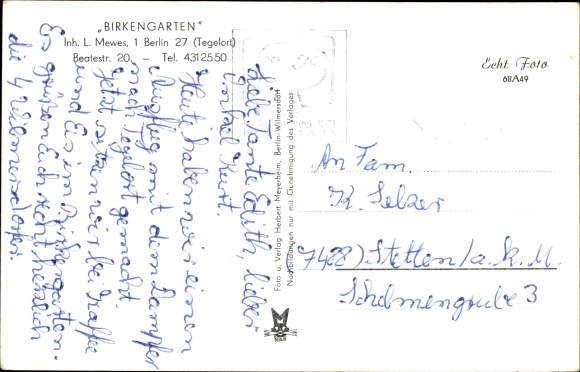 „BIRKENGARTEN"
Inh. L. Mewes, 1 Berlin 27 (Tegelort)
Beatestr. 20 – Tel. 4312550
Echt Foto
08A49
Liebe Tante Edith, lieber
Onkel Kurt.
Heute haben wir einen
Ausflug mit dem Dampfer
nach Tegelort gemacht.
Jetzt sitzen wir bei Kaffee
und Eis im Birkengarten.
Es grüßen Euch recht herzlich
die 4 Wilmersdorfer.
Foto u. Verlag Herbert Meyerheim, Berlin-Wilmersdorf
Nachbildungen nur mit Genehmigung des Verlages
1971
BERLIN
An Fam.
K. Selzer
(7488) Stetten/a.k.M.
Schelmengrube 3